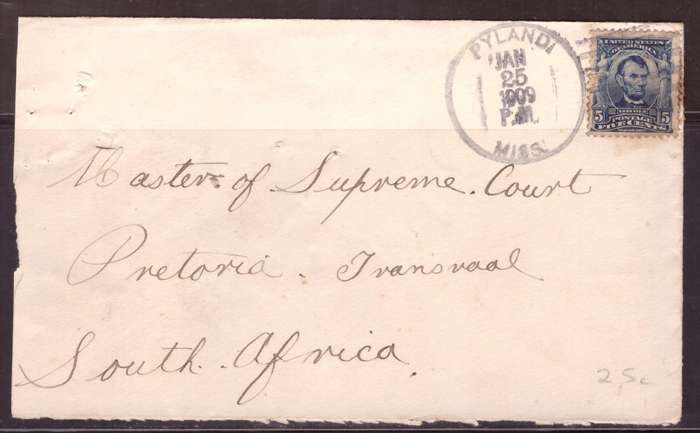 PYLAND
JAN
25
1909
P.M.
MISS.
UNITED STATES
OF AMERICA
5 5
POSTAGE
FIVE CENTS
Master of Supreme Court
Pretoria. Transvaal
South Africa
25c